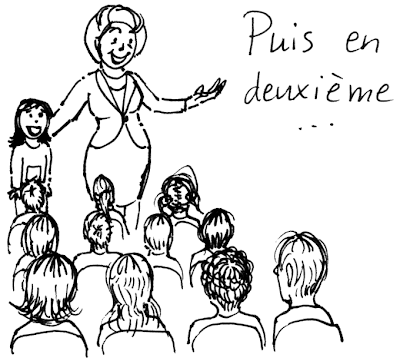 Puis en
deuxième
...